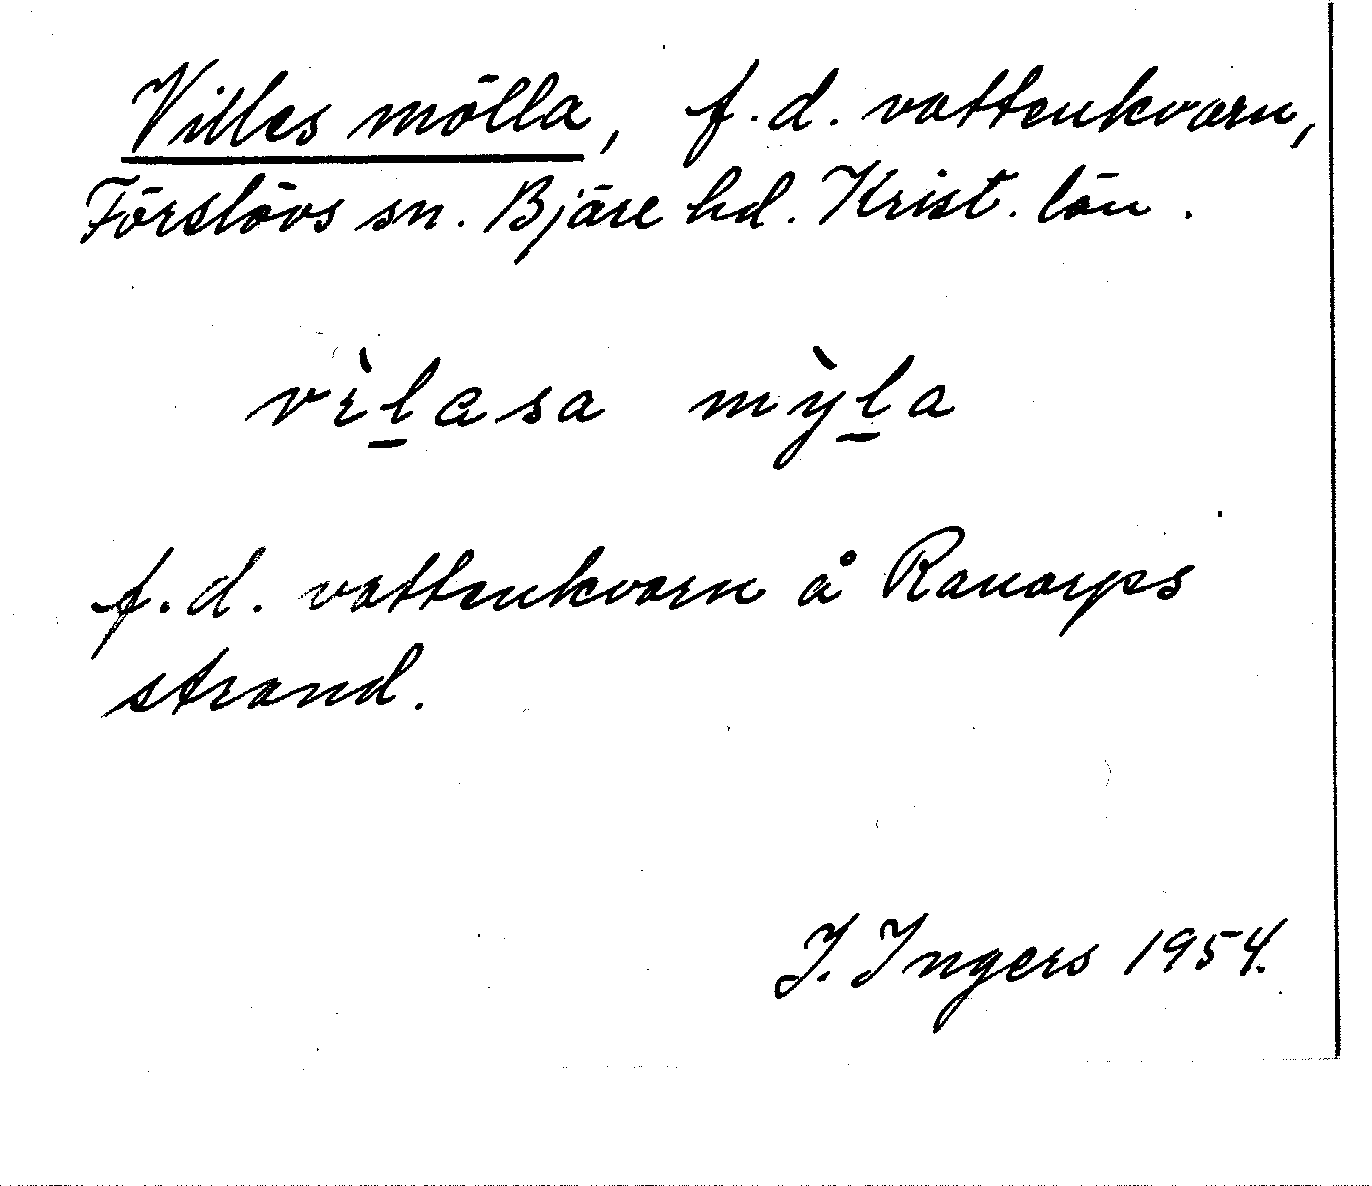 Villes mölla, f.d. vattenkvarn,
Förslövs sn. Bjäre hd. Krist. län.
vìl̲asa mỳl̲a
f.d. vattenkvarn å Ranarps
strand.
I. Ingers 1954.